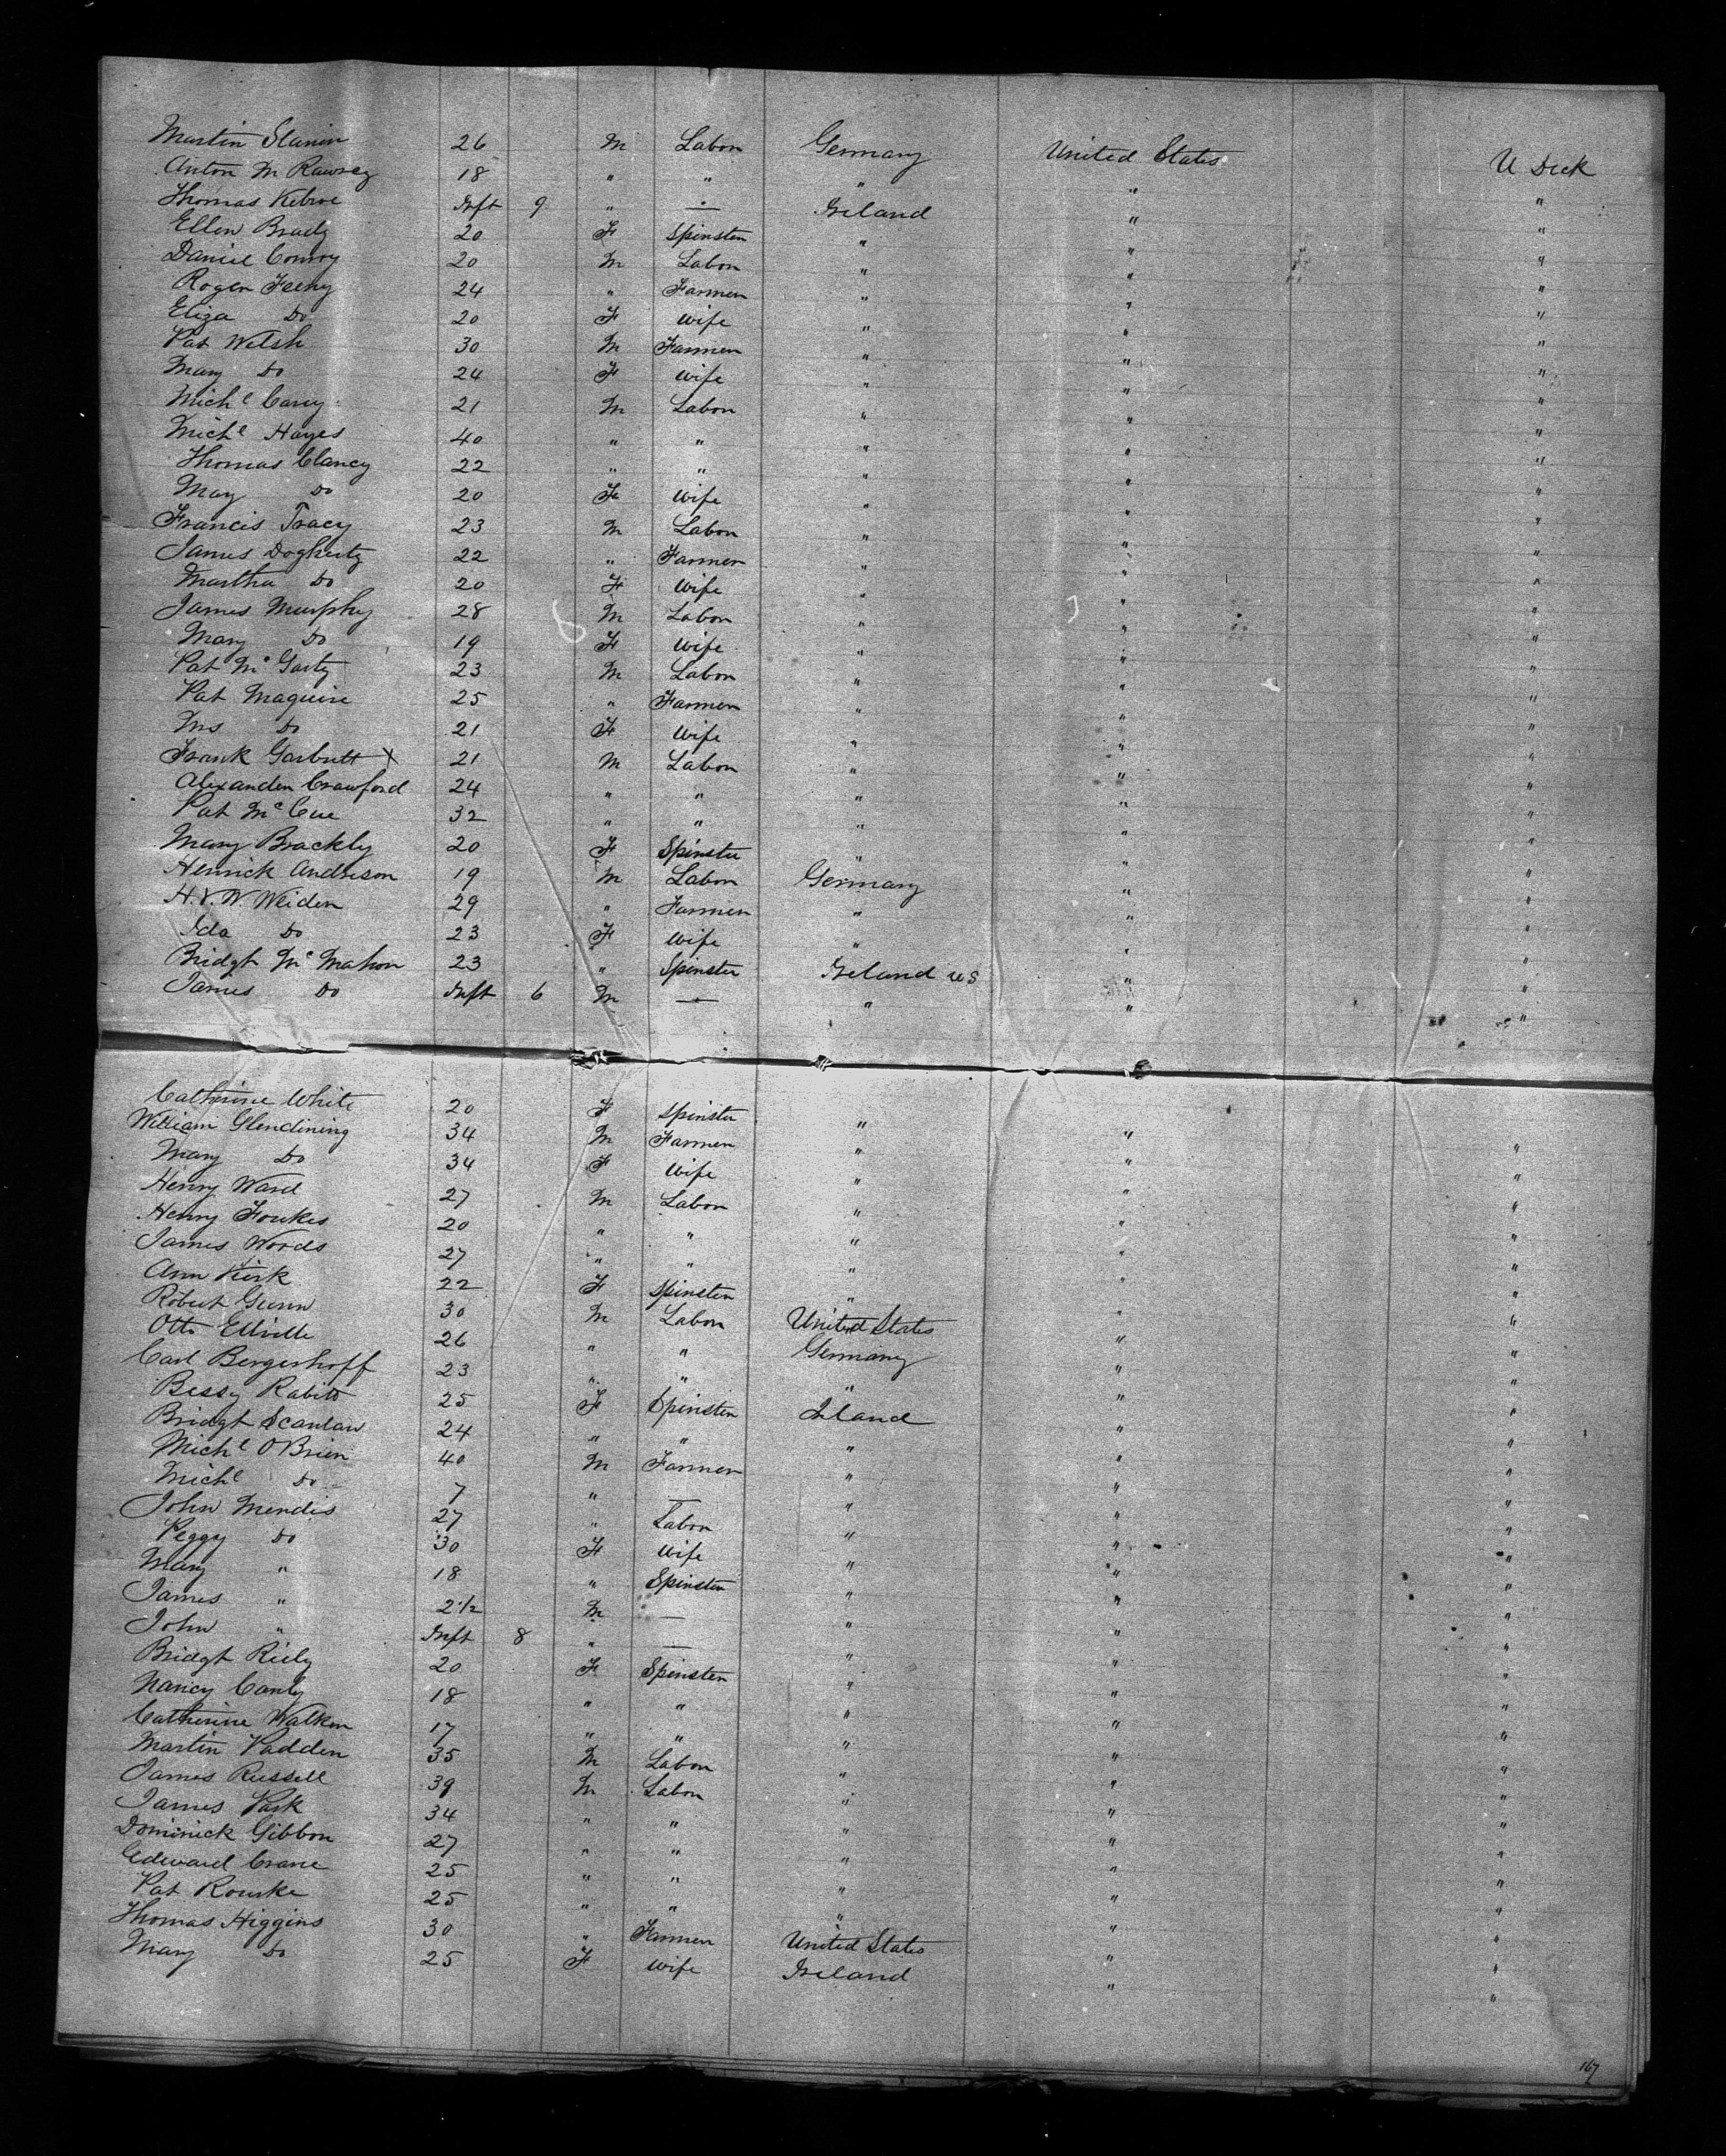 Martin Slanin 26 M Labor Germany United States U Deck
Anton M Rawrey 18 " " " " "
Thomas Kebroe Inft 9 " — Ireland " "
Ellen Brady 20 F Spinster " " "
Daniel Conroy 20 M Labor " " "
Roger Feeny 24 " Farmer " " "
Eliza Do 20 F Wife " " "
Pat Welsh 30 M Farmer " " "
Mary Do 24 F Wife " " "
Michl Carey 21 M Labor " " "
Michl Hayes 40 " " " " "
Thomas Clancy 22 " " " " "
May Do 20 F Wife " " "
Francis Tracy 23 M Labor " " "
James Dogherty 22 " Farmer " " "
Martha Do 20 F Wife " " "
James Murphy 28 M Labor " " "
Mary Do 19 F Wife " " "
Pat Mc Garty 23 M Labor " " "
Pat Maguire 25 " Farmer " " "
Mrs Do 21 F Wife " " "
Frank Garbutt X 21 M Labor " " "
Alexander Crawford 24 " " " " "
Pat Mc Cue 32 " " " " "
Mary Brackly 20 F Spinster " " "
Henrick Andreson 19 M Labor Germany " "
H.V.W. Weiden 29 " Farmer " " "
Ida Do 23 F Wife " " "
Bridgt Mc Mahon 23 " Spinster Ireland US " "
James Do Inft 6 M — " " "
Catherine White 20 F Spinster " "
William Glendining 34 M Farmer " " "
Mary Do 34 F Wife " " "
Henry Ward 27 M Labor " " "
Henry Foukes 20 " " " " "
James Woods 27 " " " " "
Ann Kirk 22 F Spinster " " "
Robert Gunn 30 M Labor United States " "
Otto Ellville 26 " " Germany " "
Carl Bergerhoff 23 " " " " "
Bessy Rabito 25 F Spinster Ireland " "
Bridgt Scanlan 24 " " " " "
Michl O'Brien 40 M Farmer " " "
Michl Do 7 " — " " "
John Mendis 27 " Labor " " "
Peggy Do 30 F Wife " " "
Mary " 18 " Spinster " " "
James " 2 1/2 M — " " "
John " Inft 8 " — " " "
Bridgt Riely 20 F Spinster " " "
Nancy Canly 18 " " " " "
Catherine Walker 17 " " " " "
Martin Padden 35 M Labor " " "
James Russell 39 M Labor " " "
James Park 34 " " " " "
Dominick Gibbon 27 " " " " "
Edward Crane 25 " " " " "
Pat Rourke 25 " " " " "
Thomas Higgins 30 " Farmer United States " "
Mary Do 25 F Wife Ireland " "
167